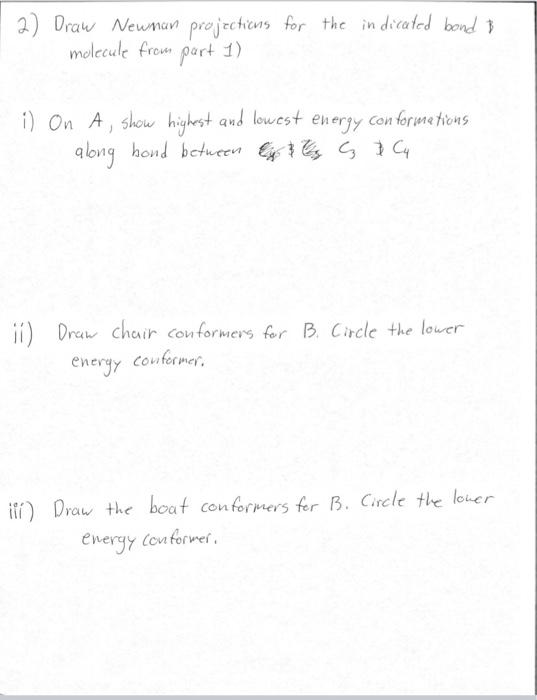 2) Draw Newman projections for the indicated bond &
molecule from part 1)
i) On A, show highest and lowest energy conformations
along bond between C₃ & C₄
ii) Draw chair conformers for B. Circle the lower
energy conformer.
iii) Draw the boat conformers for B. Circle the lower
energy conformer.